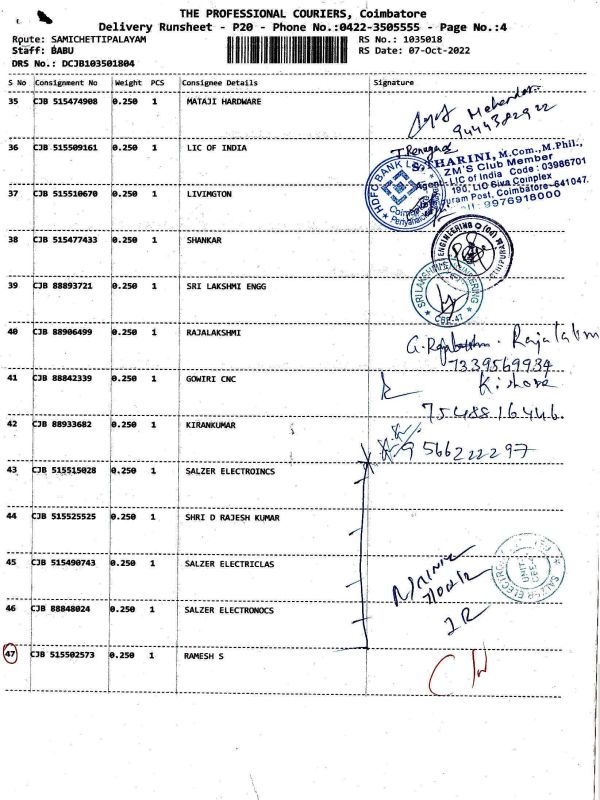 THE PROFESSIONAL COURIERS, Coimbatore
Delivery Runsheet - P20 - Phone No.:0422-3505555 - Page No.:4
Route: SAMICHETTIPALAYAM RS No.: 1035018
Staff: BABU RS Date: 07-Oct-2022
DRS No.: DCJB103501804
S No Consignment No Weight PCS Consignee Details Signature
35 CJB 515474908 0.250 1 MATAJI HARDWARE
Mahendar
9444382922
36 CJB 515509161 0.250 1 LIC OF INDIA
S.THARINI, M.Com.,M.Phil.,
ZM'S Club Member
Agent - LIC of India Code : 03986701
190, LIC Siva Complex
Post, Coimbatore-641047.
9976918000
HDFC BANK
Coimbatore
37 CJB 515510670 0.250 1 LIVIMGTON
38 CJB 515477433 0.250 1 SHANKAR
ENGINEERING
39 CJB 88893721 0.250 1 SRI LAKSHMI ENGG
SRI LAKSHMI ENGINEERING
CBE-47
40 CJB 88906499 0.250 1 RAJALAKSHMI
7339569934
41 CJB 88842339 0.250 1 GOWIRI CNC
Kishore
7548816446.
42 CJB 88933682 0.250 1 KIRANKUMAR
9566222297
43 CJB 515515028 0.250 1 SALZER ELECTROINCS
44 CJB 515525525 0.250 1 SHRI D RAJESH KUMAR
45 CJB 515490743 0.250 1 SALZER ELECTRICLAS
46 CJB 88848024 0.250 1 SALZER ELECTRONOCS
47 CJB 515502573 0.250 1 RAMESH S